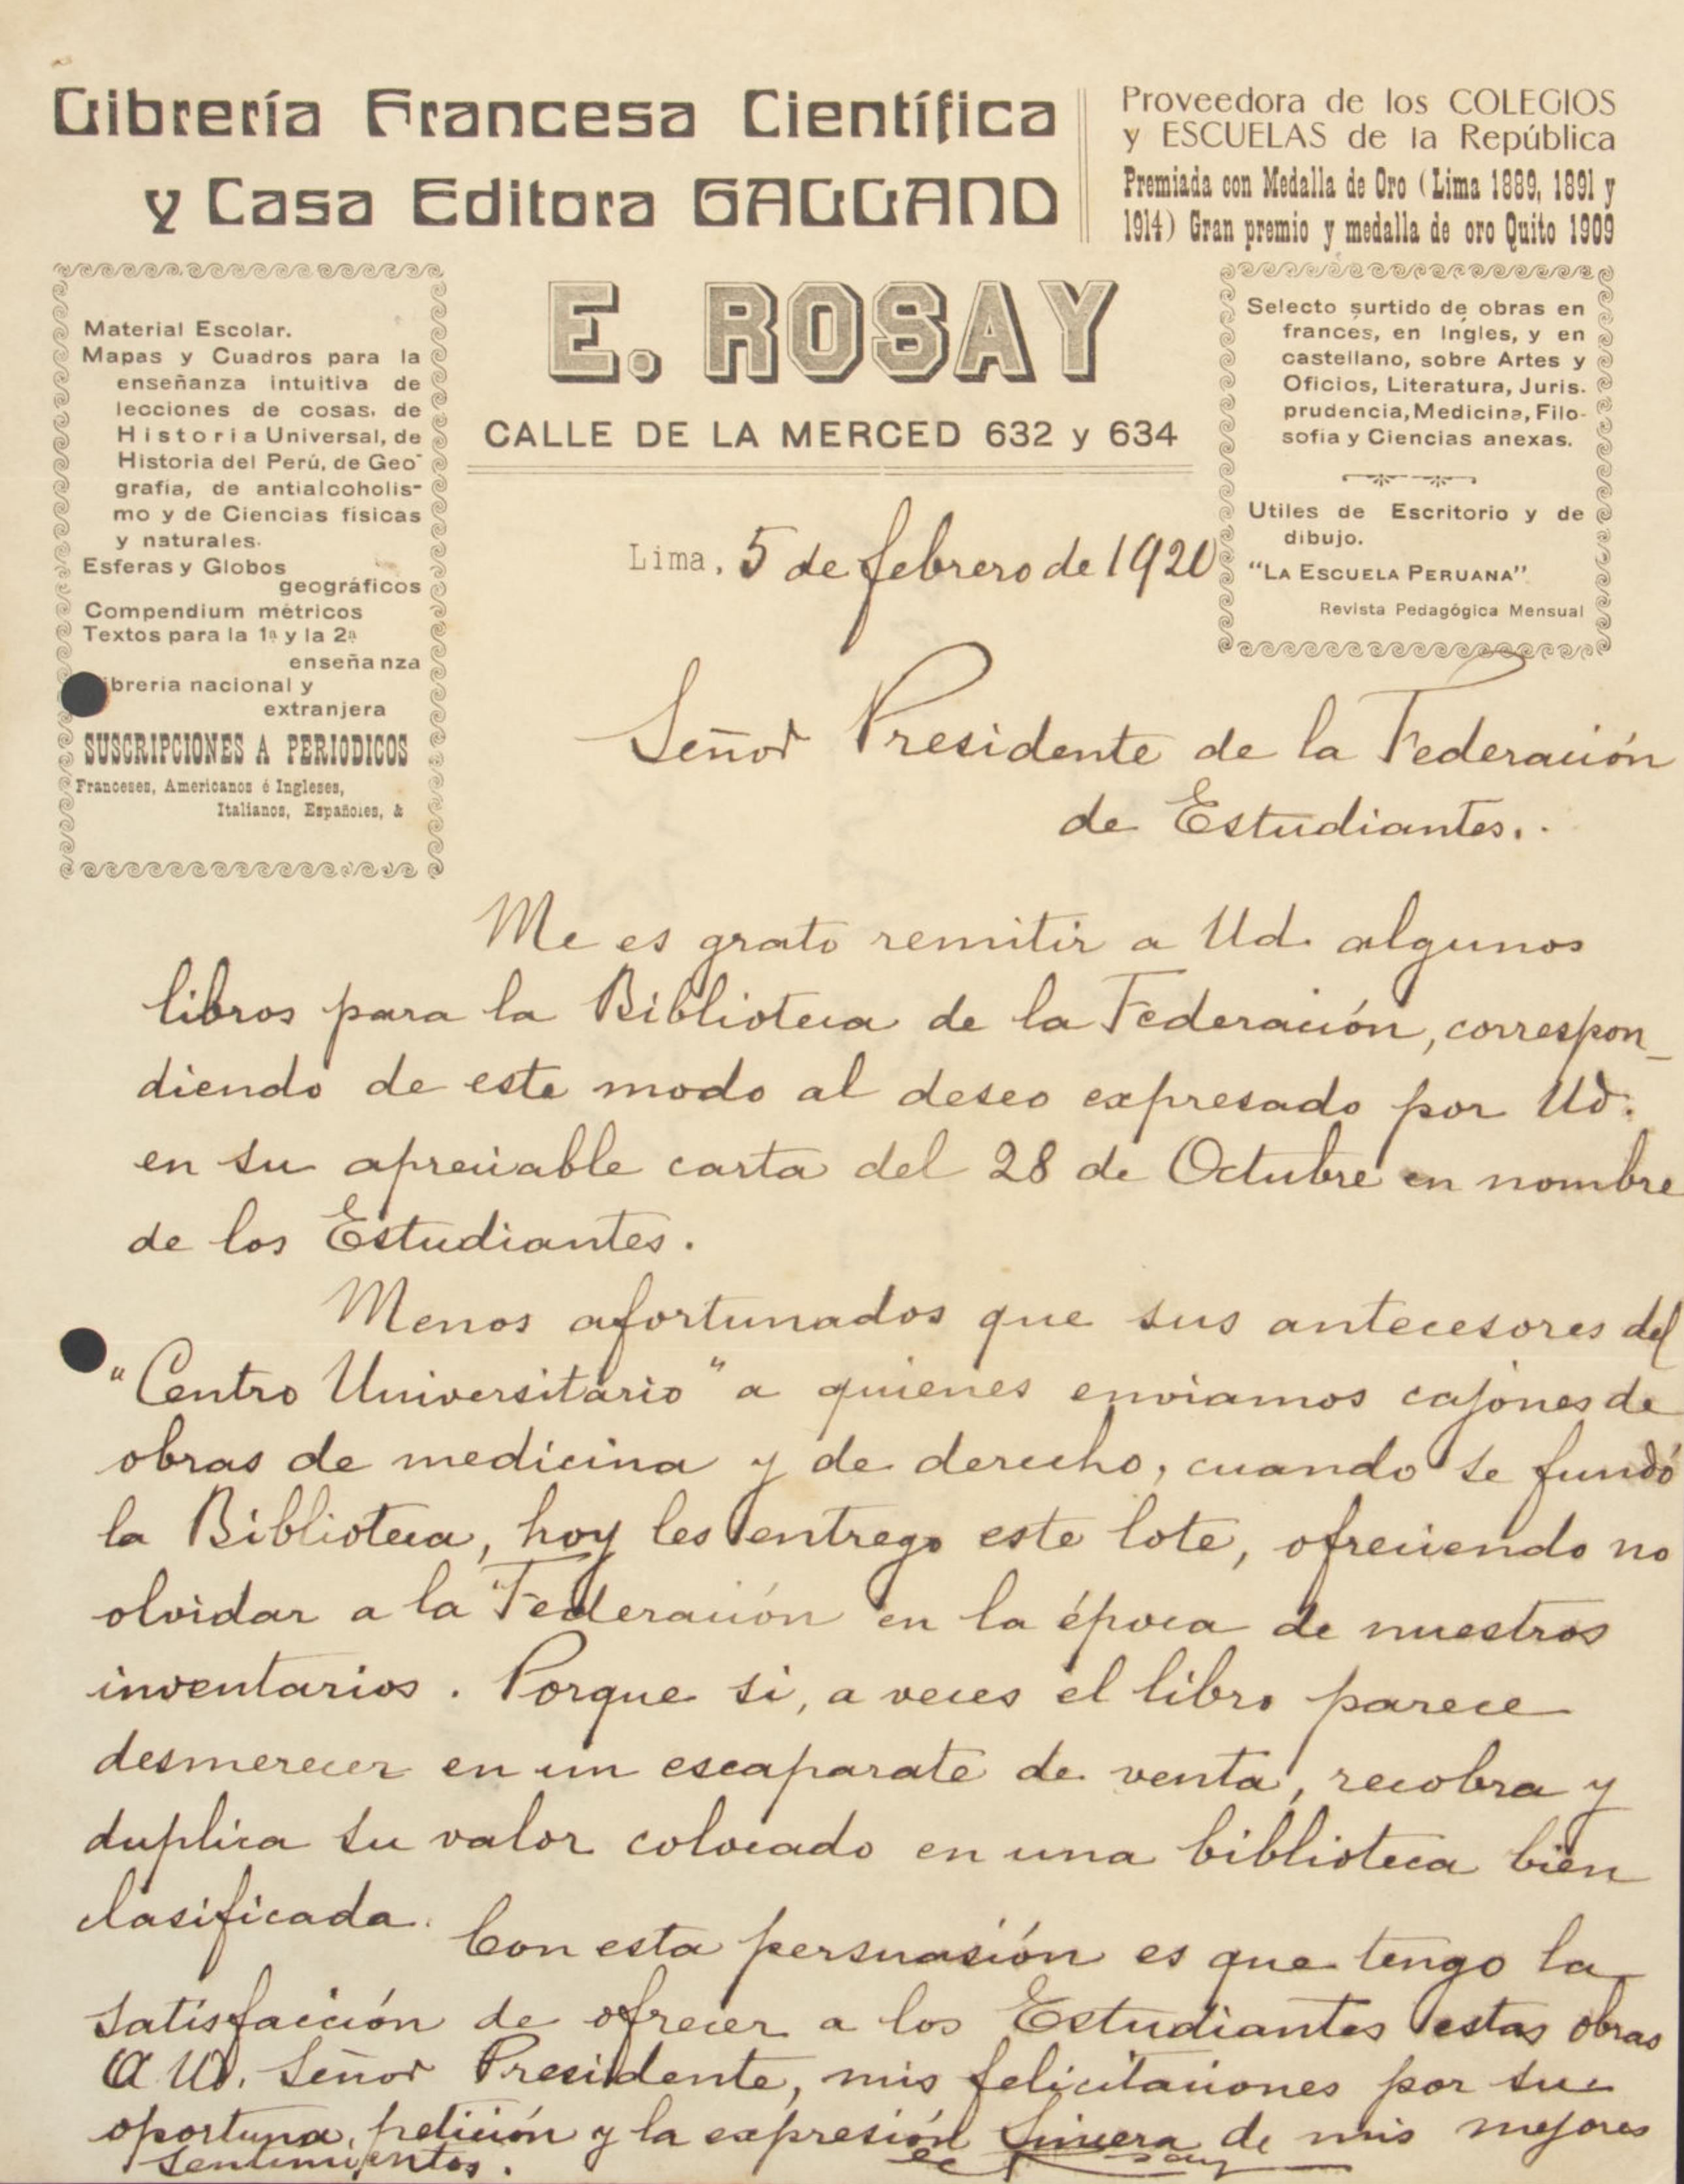 Librería Francesa Científica
y Casa Editora GALLAND
Proveedora de los COLEGIOS
y ESCUELAS de la República
Premiada con Medalla de Oro (Lima 1889, 1891 y
1914) Gran premio y medalla de oro Quito 1909
E. ROSAY
CALLE DE LA MERCED 632 y 634
Material Escolar.
Mapas y Cuadros para la
enseñanza intuitiva de
lecciones de cosas, de
Historia Universal, de
Historia del Perú, de Geo-
grafía, de antialcoholis-
mo y de Ciencias físicas
y naturales.
Esferas y Globos
geográficos
Compendium métricos
Textos para la 1ª y la 2ª
enseñanza
brería nacional y
extranjera
SUSCRIPCIONES A PERIODICOS
Franceses, Americanos é Ingleses,
Italianos, Españoles, &
Selecto surtido de obras en
frances, en Ingles, y en
castellano, sobre Artes y
Oficios, Literatura, Juris.
prudencia, Medicina, Filo-
sofía y Ciencias anexas.
Utiles de Escritorio y de
dibujo.
"LA ESCUELA PERUANA"
Revista Pedagógica Mensual
Lima, 5 de febrero de 1920
Señor Presidente de la Federación
de Estudiantes.
Me es grato remitir a Ud. algunos
libros para la Biblioteca de la Federación, correspon-
diendo de este modo al deseo expresado por Ud.
en su apreciable carta del 28 de Octubre en nombre
de los Estudiantes.
Menos afortunados que sus antecesores del
"Centro Universitario" a quienes enviamos cajones de
obras de medicina y de derecho, cuando se fundó
la Biblioteca, hoy les entrego este lote, ofreciendo no
olvidar a la Federación en la época de nuestros
inventarios. Porque si, a veces el libro parece
desmerecer en un escaparate de venta, recobra y
duplica su valor colocado en una biblioteca bien
clasificada.
Con esta persuasión es que tengo la
satisfacción de ofrecer a los Estudiantes estas obras
a Ud. Señor Presidente, mis felicitaciones por su
oportuna petición y la expresión sincera de mis mejores
sentimientos.